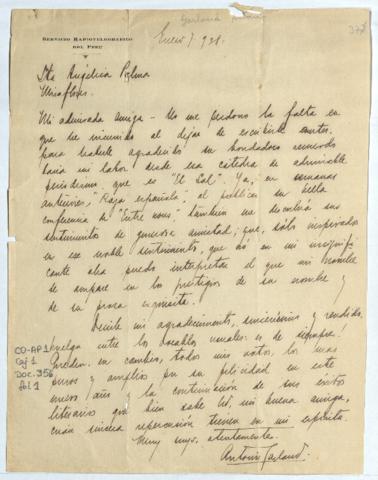 SERVICIO RADIOTELEGRAFICO
DEL PERU
Enero 7 928.
Sta Angélica Palma
Miraflores.
Mi admirada amiga - No me perdono la falta en
que he incurrido al dejar de escribirle antes,
para haberle agradecido su bondadoso recuerdo
hacia mi labor desde esa cátedra de admirable
periodismo que es "El Sol". Ya, en semanas
anteriores, "Raza española", al publicar su bella
conferencia a "Entre nous", también me descubrió sus
sentimientos de generosa amistad; que, sólo inspirados
en ese noble sentimiento, que no en mi insignifi
cante obra puedo interpretar el que mi nombre
se ampare en los prestigios de su nombre y
de su prosa exquisita.
Recibe mi agradecimiento, sincerísimo y rendido,
entre los deseables anuales: es de siempre!
en cambio, todos mis votos, los más
puros y amplios por su felicidad en este
nuevo año y la continuación de sus éxitos
literarios que bien sabe Ud, mi buena amiga,
cuán sincera repercusión tienen en mi espíritu.
Muy suyo, atentamente.
Antonio Garland.
CO-AP1
Caj 1
DOC. 356
fol. 1